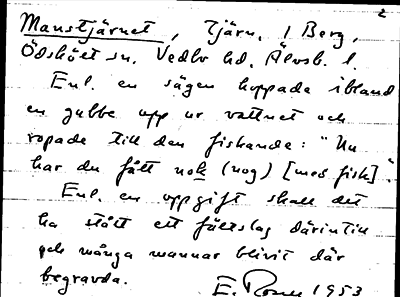 2
Manstjärnet, Tjärn, i Berg,
Ödskölt sn. Vedbo hd. Älvsb. l.
Enl. en sägen hoppade ibland
en gubbe upp ur vattnet och
ropade till den fiskande: "Nu
har du fått nok (nog) [med fisk]."
Enl. en uppgift skall det
ha stått ett fältslag därintill
och många mannar blivit där
begravda.
E. Rosen 1953